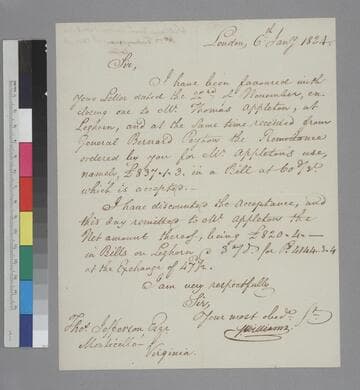 London, 6th Jany 1824.
Sir,
I have been favoured with
Your Letter dated the 22nd November, en-
closing one to Mr. Thomas Appleton, at
Leghorn, and at the same time received from
General Bernard Peyton the Remittance
ordered by you for Mr. Appleton's use,
namely, £837.1.3. in a Bill at 60 d/s.
which is accepted.—
I have discounted the Acceptance, and
this day remitted to Mr. Appleton the
Net amount thereof, being £820.4.—
in Bills on Leghorn, for 4144.3.4
at the Exchange of 47½.
I am very respectfully
Sir,
Your most obedt. St.
SWilliams
Thos. Jefferson Esqr
Monticello
Virginia.